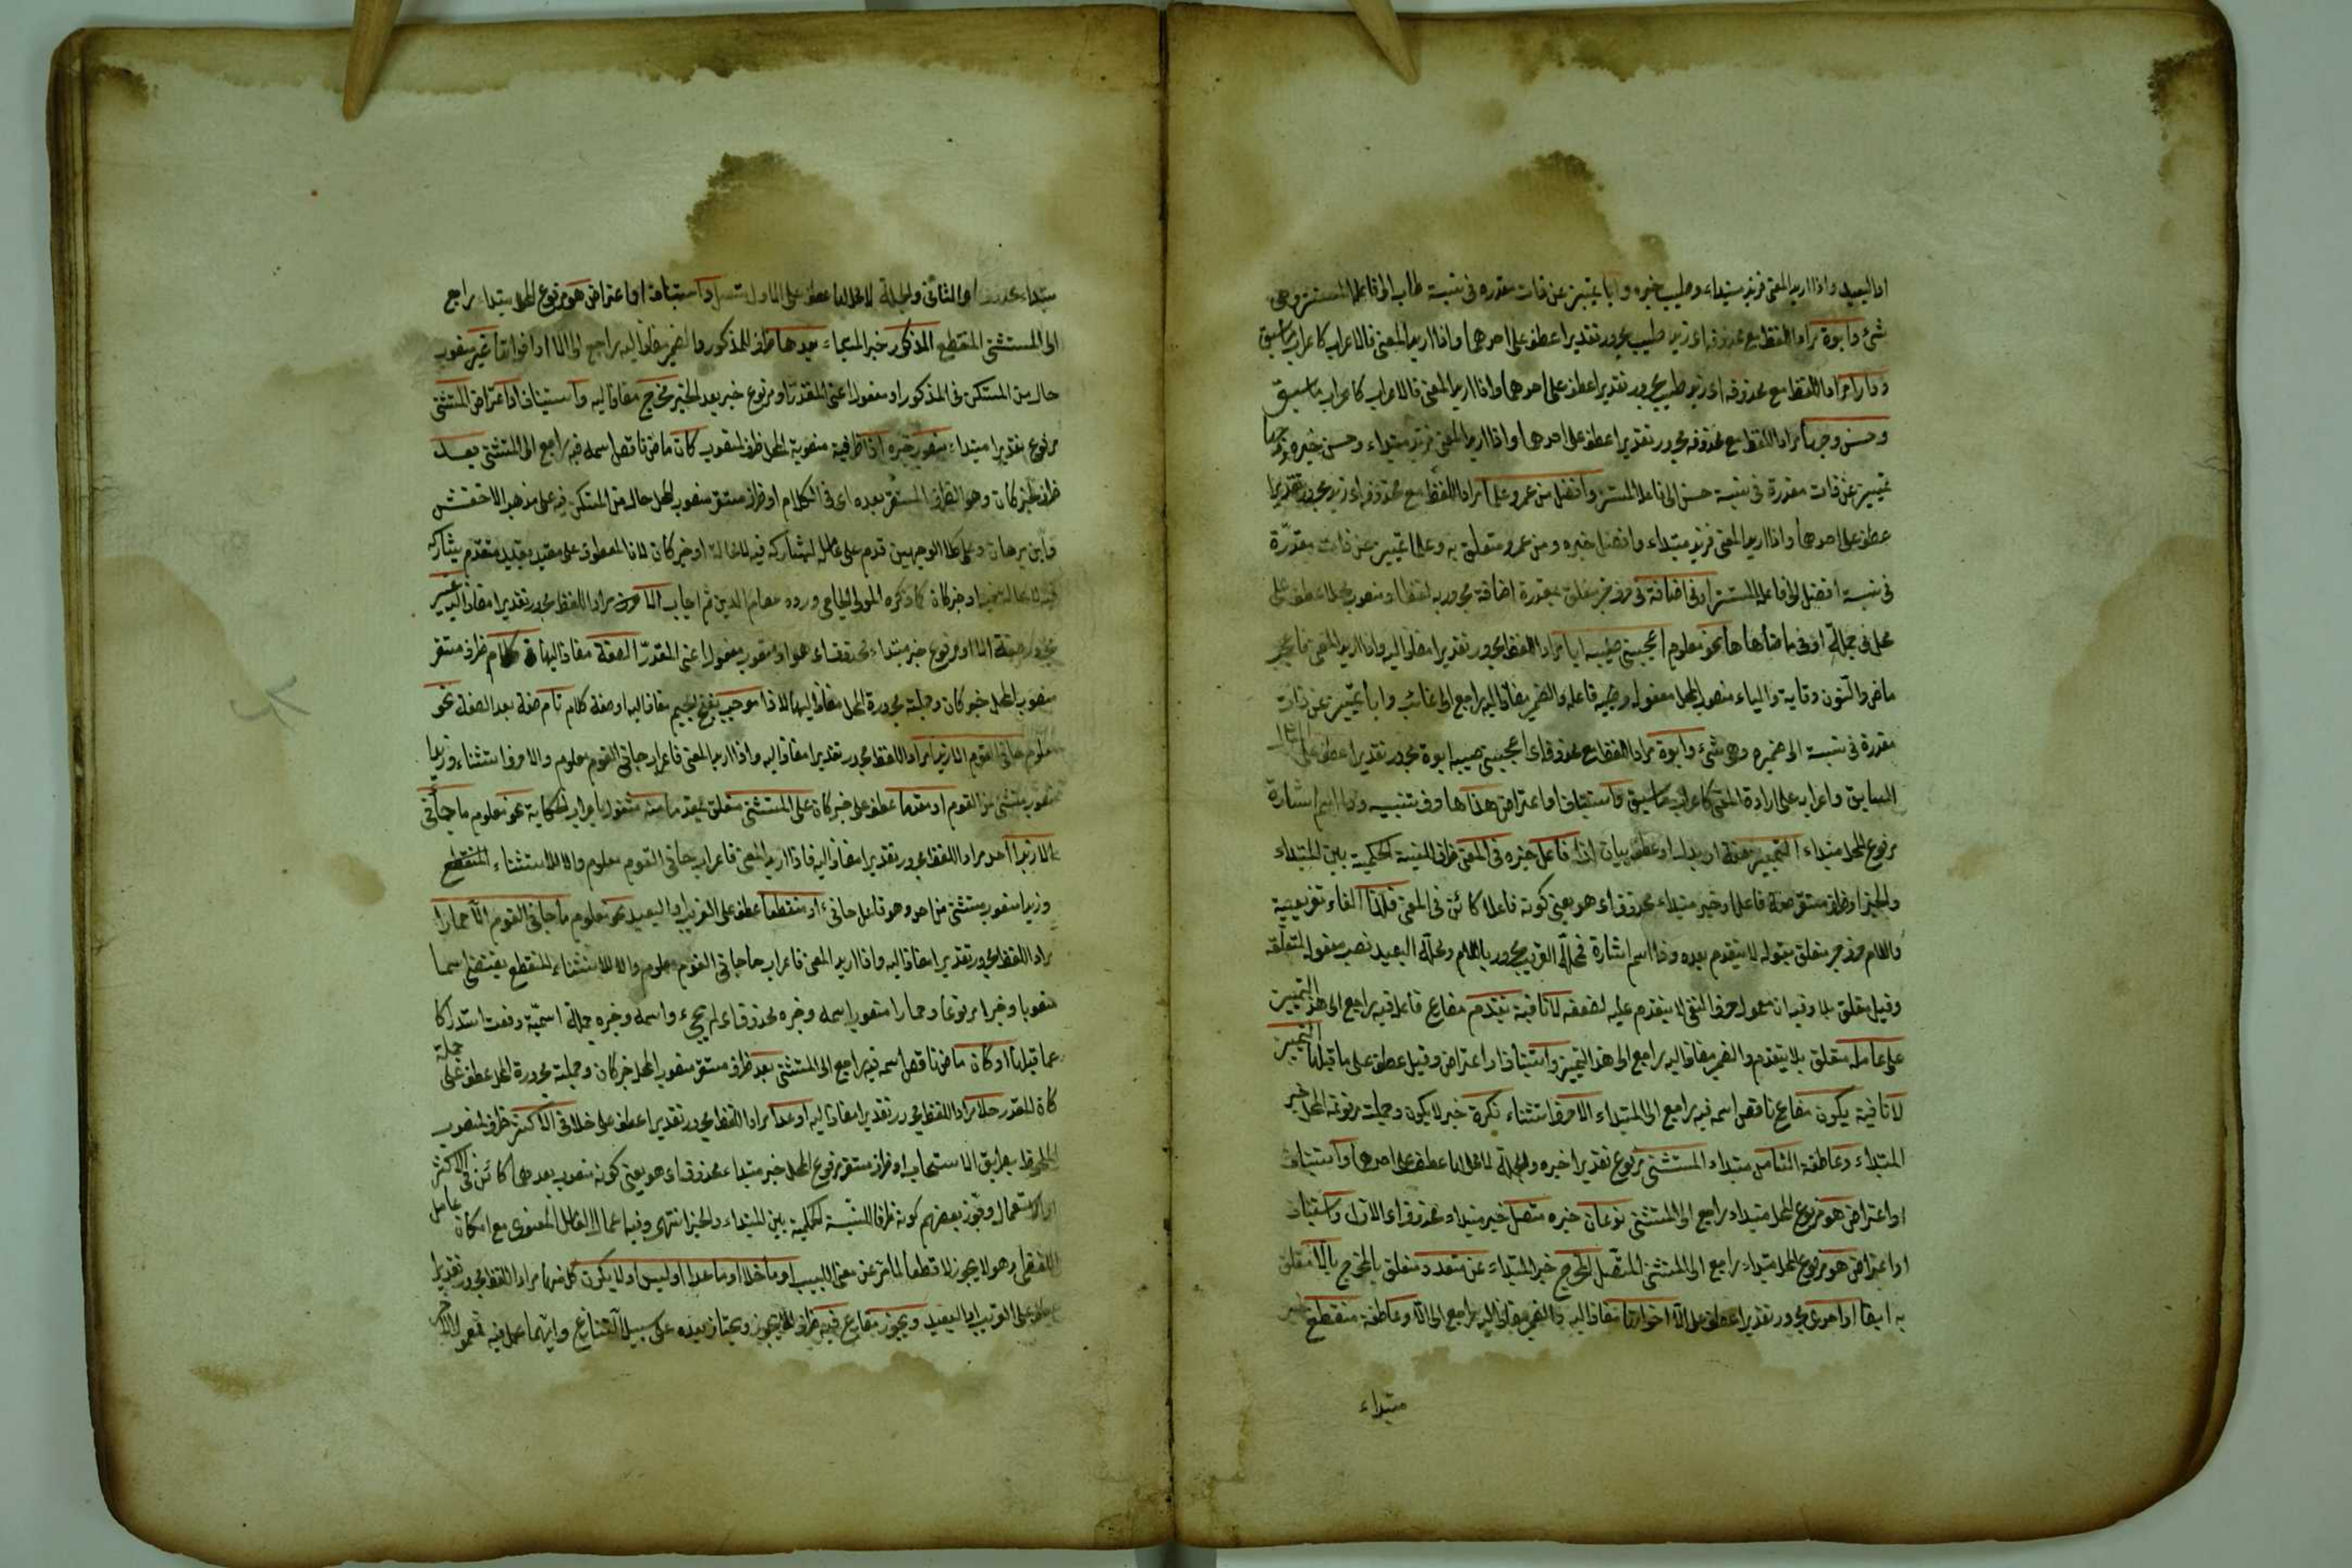 او البعيد واذا اريد المعنى فزيد مبتداء وطيب خبره وابا تمييز عن ذات مقدرة في نسبة طاب الى فاعله المستتر وهي
شئ وابوة مراد اللفظ مع محذوفه اى زيد طيب مجرور تقديرا عطف على احدهما واذا اريد المعنى فالاعراب كاعراب ما سبق
ودارا مراد اللفظ مع محذوفه اى زيد طيب مجرور تقديرا عطف على احدهما واذا اريد المعنى فالاعراب كاعراب ما سبق
وحسن وجها مراد اللفظ مع محذوفه مجرور تقديرا عطف على احدهما واذا اريد المعنى فزيد مبتداء وحسن خبره ووجها
تمييز عن ذات مقدرة في نسبة حسن الى فاعله المستتر وافضل من عمرو علما مراد اللفظ مع محذوفه اى زيد مجرور تقديرا
عطف على احدهما واذا اريد المعنى فزيد مبتداء وافضل خبره ومن عمرو متعلق به وعلما تمييز عن ذات مقدرة
في نسبة افضل الى فاعله المستتر او في اضافة في حرف جر متعلق بمقدرة اضافة مجرور به لفظا ومنصوب محلا عطف على
محل في جملة او في ما ضاهاها نحو معلوم اعجبني طيبه ابا مراد اللفظ مجرور تقديرا مضاف اليه واذا اريد المعنى فاعجب
ماض والنون وقاية والياء منصوب المحل مفعوله وطيبه فاعله والضمير مضاف اليه راجع الى غائب وابا تمييز عن ذات
مقدرة في نسبة الى ضميره وهى شئ وابوة مراد اللفظ مع محذوف اى اعجبني طيبه ابوة مجرور تقديرا عطف على المثال
السابق واعرابه على ارادة المعنى كاعراب ما سبق واستيناف او اعتراض هذا ها حرف تنبيه وذا اسم اشارة
مرفوع المحل مبتداء التمييز صفة او بدل او عطف بيان لذا فاعل خبره في المعنى ظرف للنسبة الحكمية بين المبتداء
والخبر او ظرف مستقر صفة فاعل او خبر مبتداء محذوف اى هو يعني كونه فاعلا كائن في المعنى فلذا الفاء تفريعية
واللام حرف جر متعلق بقوله لا يتقدم بعده وذا اسم اشارة فمحله القريب مجرور باللام ومحله البعيد نصب مفعول لمتعلقه
وقيل متعلق بلا وفيه ان معمول حرف النفي لا يتقدم عليه لضعفه لا نافية يتقدم مضارع فاعله فيه راجع الى هذا التمييز
على عامله متعلق بلا يتقدم والضمير مضاف اليه راجع الى هذا التمييز واستيناف او اعتراض وقيل عطف على ما قبلها التمييز
لا نافية يكون مضارع ناقص اسمه فيه راجع الى المبتداء الا حرف استثناء نكرة خبر لا يكون وجملته مرفوعة المحل خبر
المبتداء وعاطفة الثامن مبتداء المستثنى مرفوع تقديرا خبره والجملة لا محل لها عطف على احدهما واستيناف
او اعتراض هو مرفوع المحل مبتداء راجع الى المستثنى نوعان خبره متصل خبر مبتداء محذوف اى الاول واستيناف
او اعتراض هو مرفوع المحل مبتداء راجع الى المستثنى المتصل المخرج خبر المبتداء عن متعدد متعلق بالمخرج بالا متعلق
به ايضا او احدى مجرور تقديرا عطف على الا اخواتها مضاف اليه والضمير مضاف اليه راجع الى الا وعاطفة منقطع خبر
مبتداء
مبتداء محذوف اى الثاني والجملة لا محل لها عطف على الاول متصل واستيناف او اعتراض هو مرفوع المحل مبتداء راجع
الى المستثنى المنقطع المذكور خبر المبتداء بعدها ظرف المذكور والضمير مضاف اليه راجع الى الا او اخواتها غير منصوب
حال من المستكن في المذكور او مفعول اعنى المقدر او مرفوع خبر بعد الخبر مخرج مضاف اليه واستيناف او اعتراض المستثنى
مرفوع تقديرا مبتداء منصوب خبره اذا ظرفية منصوبة المحل ظرف لمنصوب كان ماض ناقص اسمه فيه راجع الى المستثنى بعد
ظرف خبر كان وهو الظرف المستقر بعده اى في الكلام او ظرف مستقر منصوب المحل حال من المستكن فيه على مذهب الاخفش
وابن برهان وعلى كلا الوجهين قدم على عامل لمشاركه فيه لا محالة او خبر كان لان المعطوف على مقيد بقيد متقدم يشاركه
كما ذكره المولى الجامي ورده عصام الدين ثم اجاب الا مراد اللفظ مجرور تقديرا مضاف اليه غير
مجرور صفة الا او مرفوع خبر مبتداء محذوف اى هو او منصوب مفعول اعنى المقدر الصفة مضاف اليها في كلام ظرف مستقر
منصوب المحل خبر كان وجملته مجرورة المحل مضاف اليها لاذا موجب بفتح الجيم مضاف اليه او صفة كلام تام صفة بعد الصفة نحو
معلوم جاني القوم الا زيدا مراد اللفظ مجرور تقديرا مضاف اليه واذا اريد المعنى فاعراب جاني القوم معلوم والا حرف استثناء وزيدا
منصوب مستثنى من القوم او مقدما عطف على خبر كان على المستثنى متعلق بمقدما منه مشغول باعراب الحكاية نحو معلوم ما جاني
الا زيدا احد مراد اللفظ مجرور تقديرا مضاف اليه فاذا اريد المعنى فاعراب جاني القوم معلوم والا للاستثناء المنقطع
وزيدا منصوب مستثنى من احد وهو فاعل جاني او منقطعا عطف على القريب او البعيد نحو معلوم ما جاني القوم الا حمارا
مراد اللفظ مجرور تقديرا مضاف اليه واذا اريد المعنى فاعراب ما جاني القوم معلوم والا للاستثناء المنقطع يقتضى اسما
منصوبا وخبرا مرفوعا وحمارا منصوب اسمه وخبره محذوف اى لم يجئ واسمه وخبره جملة اسمية وقعت استدراكا
عما قبلها او كان ماض ناقص اسمه فيه راجع الى المستثنى بعد ظرف مستقر منصوب المحل خبر كان وجملته مجرورة المحل عطف على جملة
كان المقدر خلا مراد اللفظ مجرور تقديرا مضاف اليه او عدا مراد اللفظ مجرور تقديرا عطف على خلا في الاكثر ظرف لمنصوب
الملحوظ بطريق الانسحاب او ظرف مستقر مرفوع المحل خبر مبتداء محذوف اى هو يعني كونه منصوب بعدهما كائن في الاكثر
الاستعمال وجوز بعضهم كونه ظرفا للنسبة الحكمية بين المبتداء والخبر انتهى وفيه اعمال العامل المعنوى مع امكان عامل
اللفظى وهو لا يجوز او ما خلا او ما عدا او ليس او لا يكون كل منها مراد اللفظ مجرور تقديرا
عطف على القريب او البعيد ويجوز مضارع فيه ظرف ليجوز ويختار بعده على سبيل التنازع وايهما عمل فيه